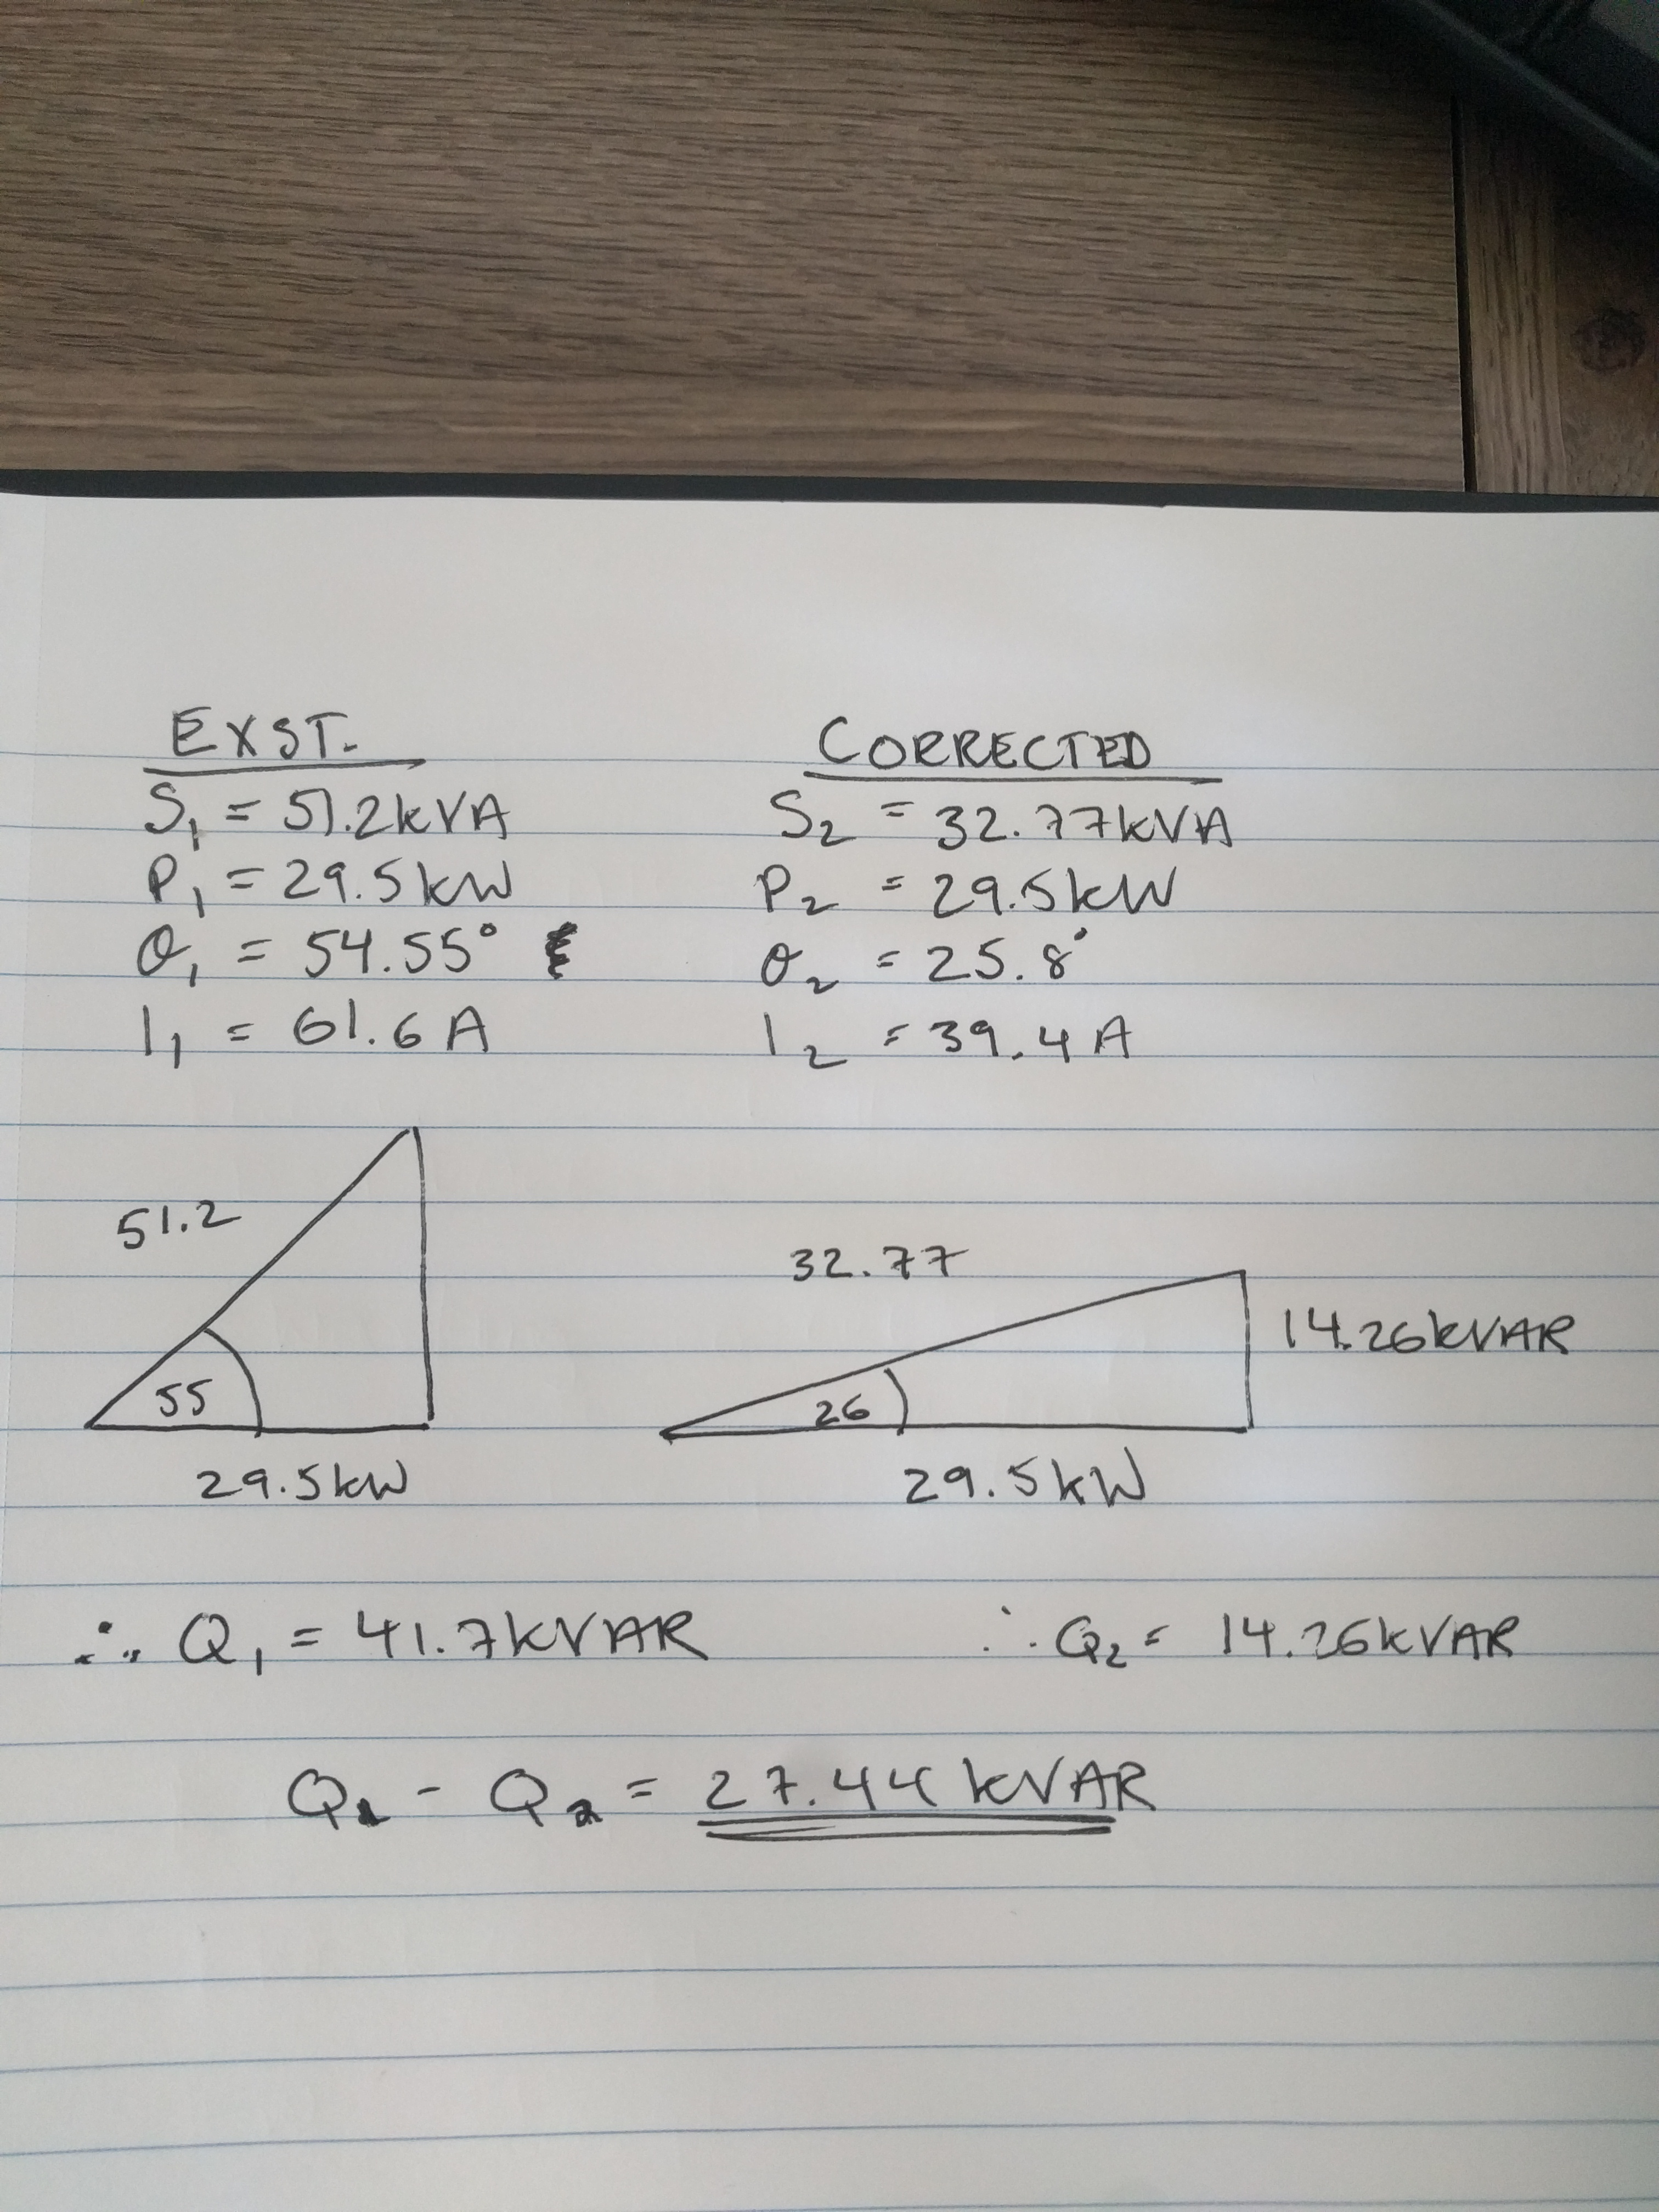 EXST.
S₁ = 51.2kVA
P₁ = 29.5kW
θ₁ = 54.55°
I₁ = 61.6A
CORRECTED
S₂ = 32.77kVA
P₂ = 29.5kW
θ₂ = 25.8°
I₂ = 39.4A
51.2
55
29.5kW
32.77
26
14.26kVAR
29.5kW
∴ Q₁ = 41.7kVAR
∴ Q₂ = 14.26kVAR
Q₁ - Q₂ = 27.44kVAR